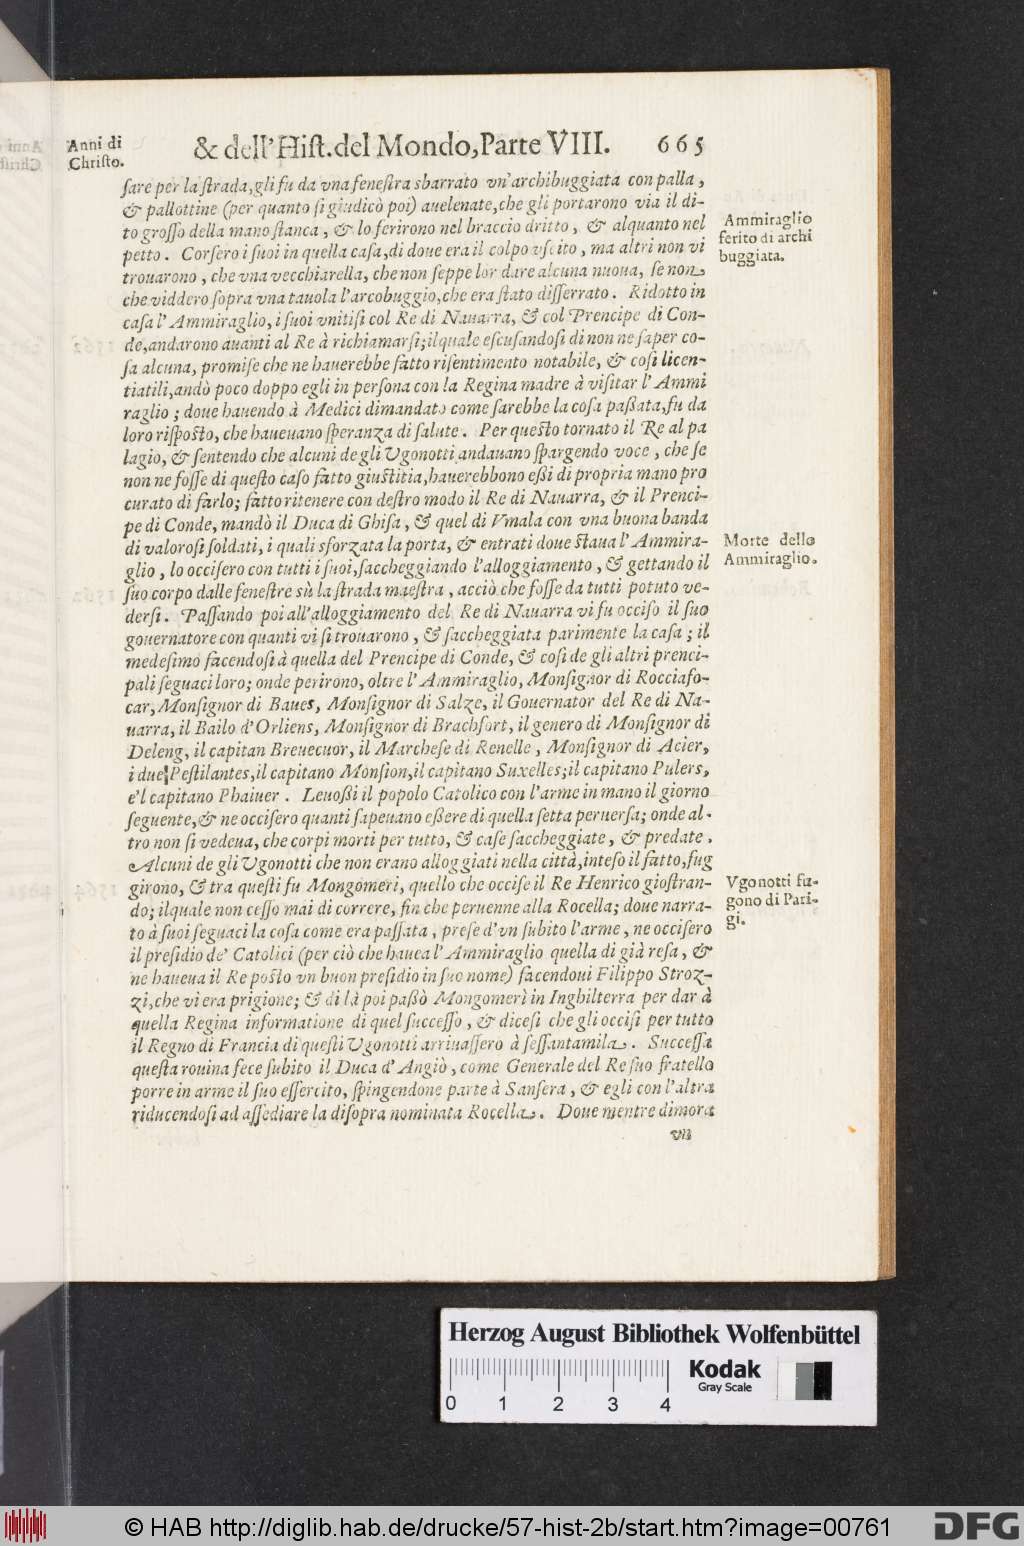 Anni di
Christo.
& dell'Hiſt. del Mondo, Parte VIII. 665
ſare per la ſtrada, gli fu da vna feneſtra sbarrato vn'archibuggiata con palla,
& pallottine (per quanto ſi giudicò poi) auelenate, che gli portarono via il di-
to groſſo della mano ſtanca, & lo ferirono nel braccio dritto, & alquanto nel
petto. Corſero i ſuoi in quella caſa, di doue era il colpo vſcito, ma altri non vi
trouarono, che vna vecchiarella, che non ſeppe lor dare alcuna nuoua, ſe non
che viddero ſopra vna tauola l'arcobuggio, che era ſtato diſſerrato. Ridotto in
caſa l'Ammiraglio, i ſuoi vnitiſi col Re di Nauarra, & col Prencipe di Con-
de, andarono auanti al Re à richiamarſi; ilquale eſcuſandoſi di non ne ſaper co-
ſa alcuna, promiſe che ne hauerebbe fatto riſentimento notabile, & coſi licen-
tiatili, andò poco doppo egli in perſona con la Regina madre à viſitar l'Ammi
raglio; doue hauendo à Medici dimandato come ſarebbe la coſa paßata, fu da
loro riſpoſto, che haueuano ſperanza di ſalute. Per queſto tornato il Re al pa
lagio, & ſentendo che alcuni de gli Vgonotti andauano ſpargendo voce, che ſe
non ne foſſe di queſto caſo fatto giuſtitia, hauerebbono eßi di propria mano pro
curato di farlo; fatto ritenere con deſtro modo il Re di Nauarra, & il Prenci-
pe di Conde, mandò il Duca di Ghiſa, & quel di Vmala con vna buona banda
di valoroſi ſoldati, i quali sforzata la porta, & entrati doue ſtaua l'Ammira-
glio, lo occiſero con tutti i ſuoi, ſaccheggiando l'alloggiamento, & gettando il
ſuo corpo dalle feneſtre sù la ſtrada maeſtra, acciò che foſſe da tutti potuto ve-
derſi. Paſſando poi all'alloggiamento del Re di Nauarra vi fu occiſo il ſuo
gouernatore con quanti vi ſi trouarono, & ſaccheggiata parimente la caſa; il
medeſimo facendoſi à quella del Prencipe di Conde, & coſi de gli altri prenci-
pali ſeguaci loro; onde perirono, oltre l'Ammiraglio, Monſignor di Rocciafo-
car, Monſignor di Baues, Monſignor di Salze, il Gouernator del Re di Na-
uarra, il Bailo d'Orliens, Monſignor di Brachfort, il genero di Monſignor di
Deleng, il capitan Breuecuor, il Marcheſe di Renelle, Monſignor di Acier,
i due Peſtilantes, il capitano Monſion, il capitano Suxelles; il capitano Pulers,
e'l capitano Phaiuer. Leuoßi il popolo Catolico con l'arme in mano il giorno
ſeguente, & ne occiſero quanti ſapeuano eßere di quella ſetta peruerſa; onde al-
tro non ſi vedeua, che corpi morti per tutto, & caſe ſaccheggiate, & predate.
Alcuni de gli Vgonotti che non erano alloggiati nella città, inteſo il fatto, fug
girono, & tra queſti fu Mongomeri, quello che occiſe il Re Henrico gioſtran-
do; ilquale non ceſſo mai di correre, fin che peruenne alla Rocella; doue narra-
to à ſuoi ſeguaci la coſa come era paſſata, preſe d'vn ſubito l'arme, ne occiſero
il preſidio de' Catolici (per ciò che hauea l'Ammiraglio quella di già reſa, &
ne haueua il Re poſto vn buon preſidio in ſuo nome) facendoui Filippo Stroz-
zi, che vi era prigione; & di là poi paßò Mongomerì in Inghilterra per dar à
quella Regina informatione di quel ſucceſſo, & diceſi che gli occiſi per tutto
il Regno di Francia di queſti Vgonotti arriuaſſero à ſeſſantamila. Succeſſa
queſta rouina fece ſubito il Duca d'Angiò, come Generale del Re ſuo fratello
porre in arme il ſuo eſſercito, ſpingendone parte à Sanſera, & egli con l'altra
riducendoſi ad aſſediare la diſopra nominata Rocella. Doue mentre dimora
vn
Ammiraglio
ferito di archi
buggiata.
Morte dello
Ammiraglio.
Vgonotti fu-
gono di Pari-
gi.
Herzog August Bibliothek Wolfenbüttel
Kodak
Gray Scale
0 1 2 3 4
© HAB http://diglib.hab.de/drucke/57-hist-2b/start.htm?image=00761
DFG